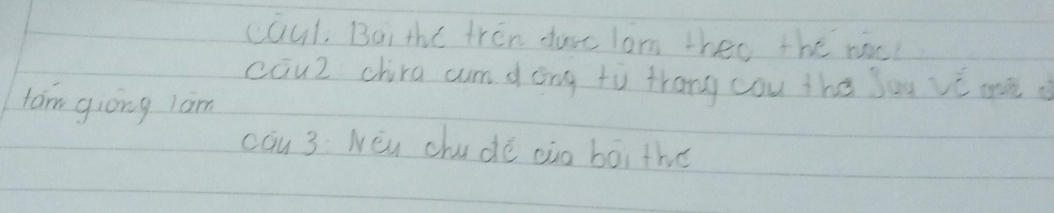 câu1. Bài thơ trên được làm theo thể nào?
câu2 chỉ ra cụm động từ trong câu thơ sau về
tám giống lam
câu 3: Nêu chủ đề của bài thơ